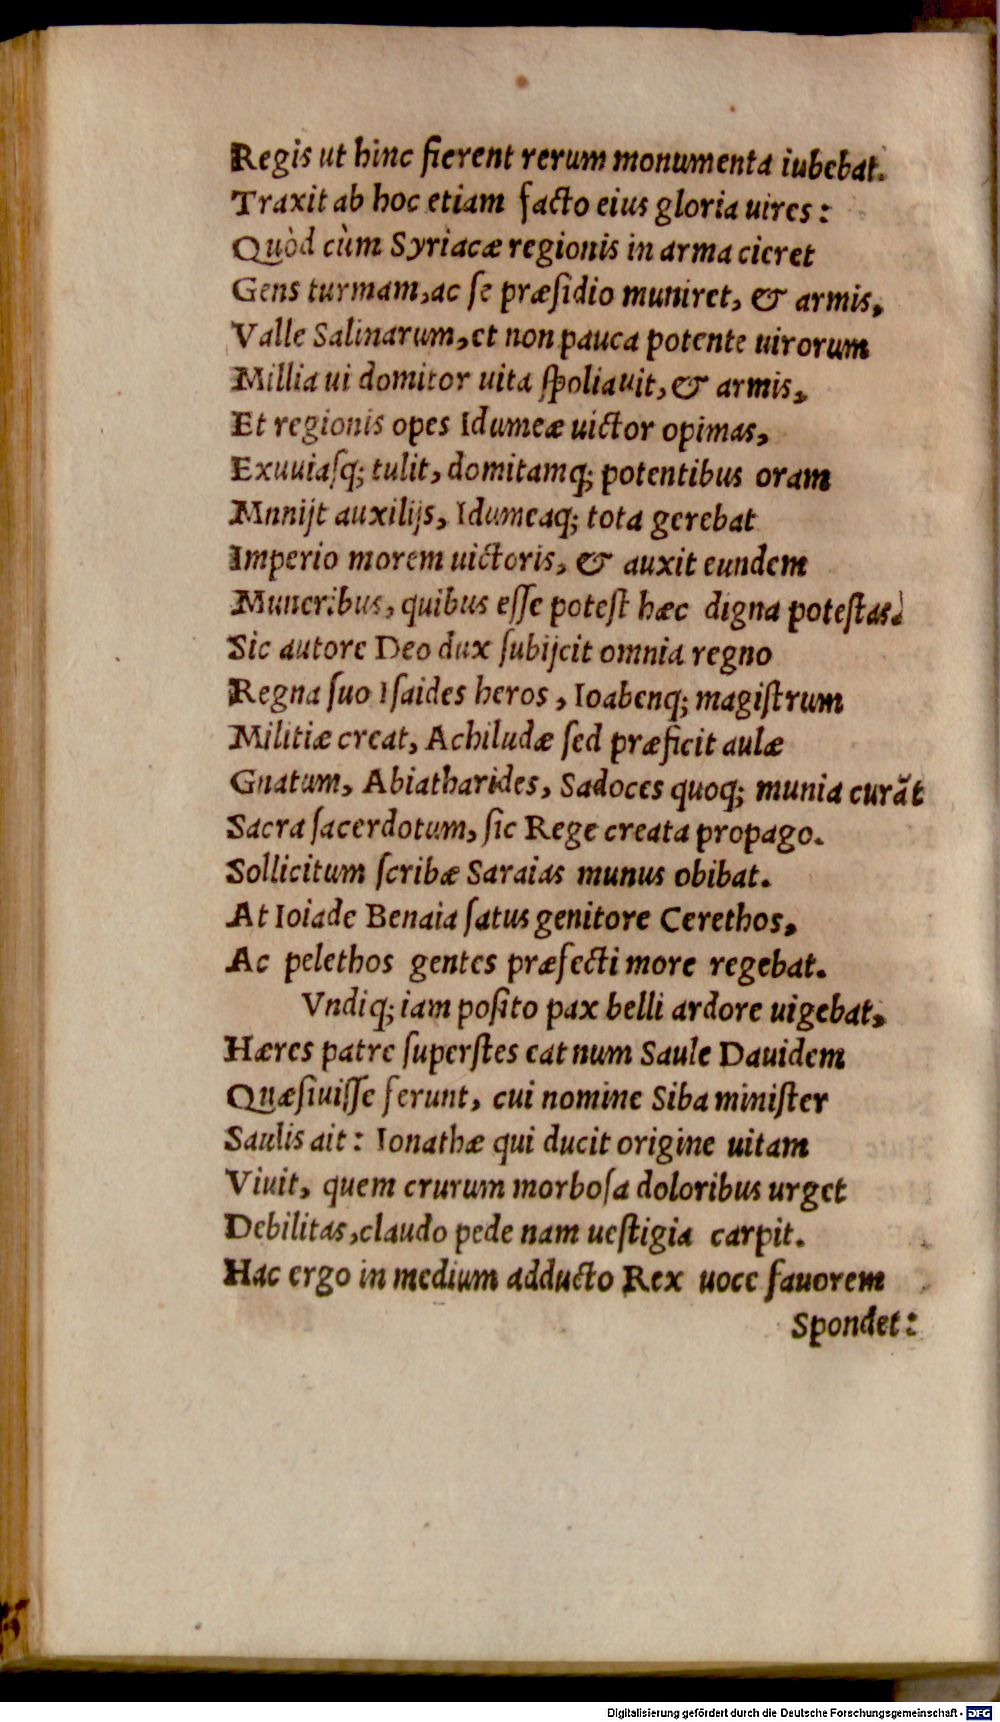 Regis ut hinc fierent rerum monumenta iubebat.
Traxit ab hoc etiam facto eius gloria uires:
Quòd cùm Syriacæ regionis in arma cieret
Gens turmam, ac se præſidio muniret, & armis,
Valle Salinarum, et non pauca potente uirorum
Millia ui domitor uita ſpoliauit, & armis,
Et regionis opes Idumeæ uictor opimas,
Exuuiaſq; tulit, domitamq; potentibus oram
Mnnijt auxilijs, Idumeaq; tota gerebat
Imperio morem uictoris, & auxit eundem
Muneribus, quibus eſſe poteſt hæc digna poteſtas.
Sic autore Deo dux ſubijcit omnia regno
Regna ſuo Iſaides heros, Ioabenq; magiſtrum
Militiæ creat, Achiludæ ſed præficit aulæ
Gnatum, Abiatharides, Sadoces quoq; munia curãt
Sacra ſacerdotum, ſic Rege creata propago.
Sollicitum ſcribæ Saraias munus obibat.
At Ioiade Benaia ſatus genitore Cerethos,
Ac pelethos gentes præfecti more regebat.
Vndiq; iam poſito pax belli ardore uigebat,
Hæres patre ſuperſtes eat num Saule Dauidem
Quæſiuiſſe ferunt, cui nomine Siba miniſter
Saulis ait: Ionathæ qui ducit origine uitam
Viuit, quem crurum morboſa doloribus urget
Debilitas, claudo pede nam ueſtigia carpit.
Hac ergo in medium adducto Rex uoce fauorem
Spondet:
Digitalisierung gefördert durch die Deutsche Forschungsgemeinschaft - DFG